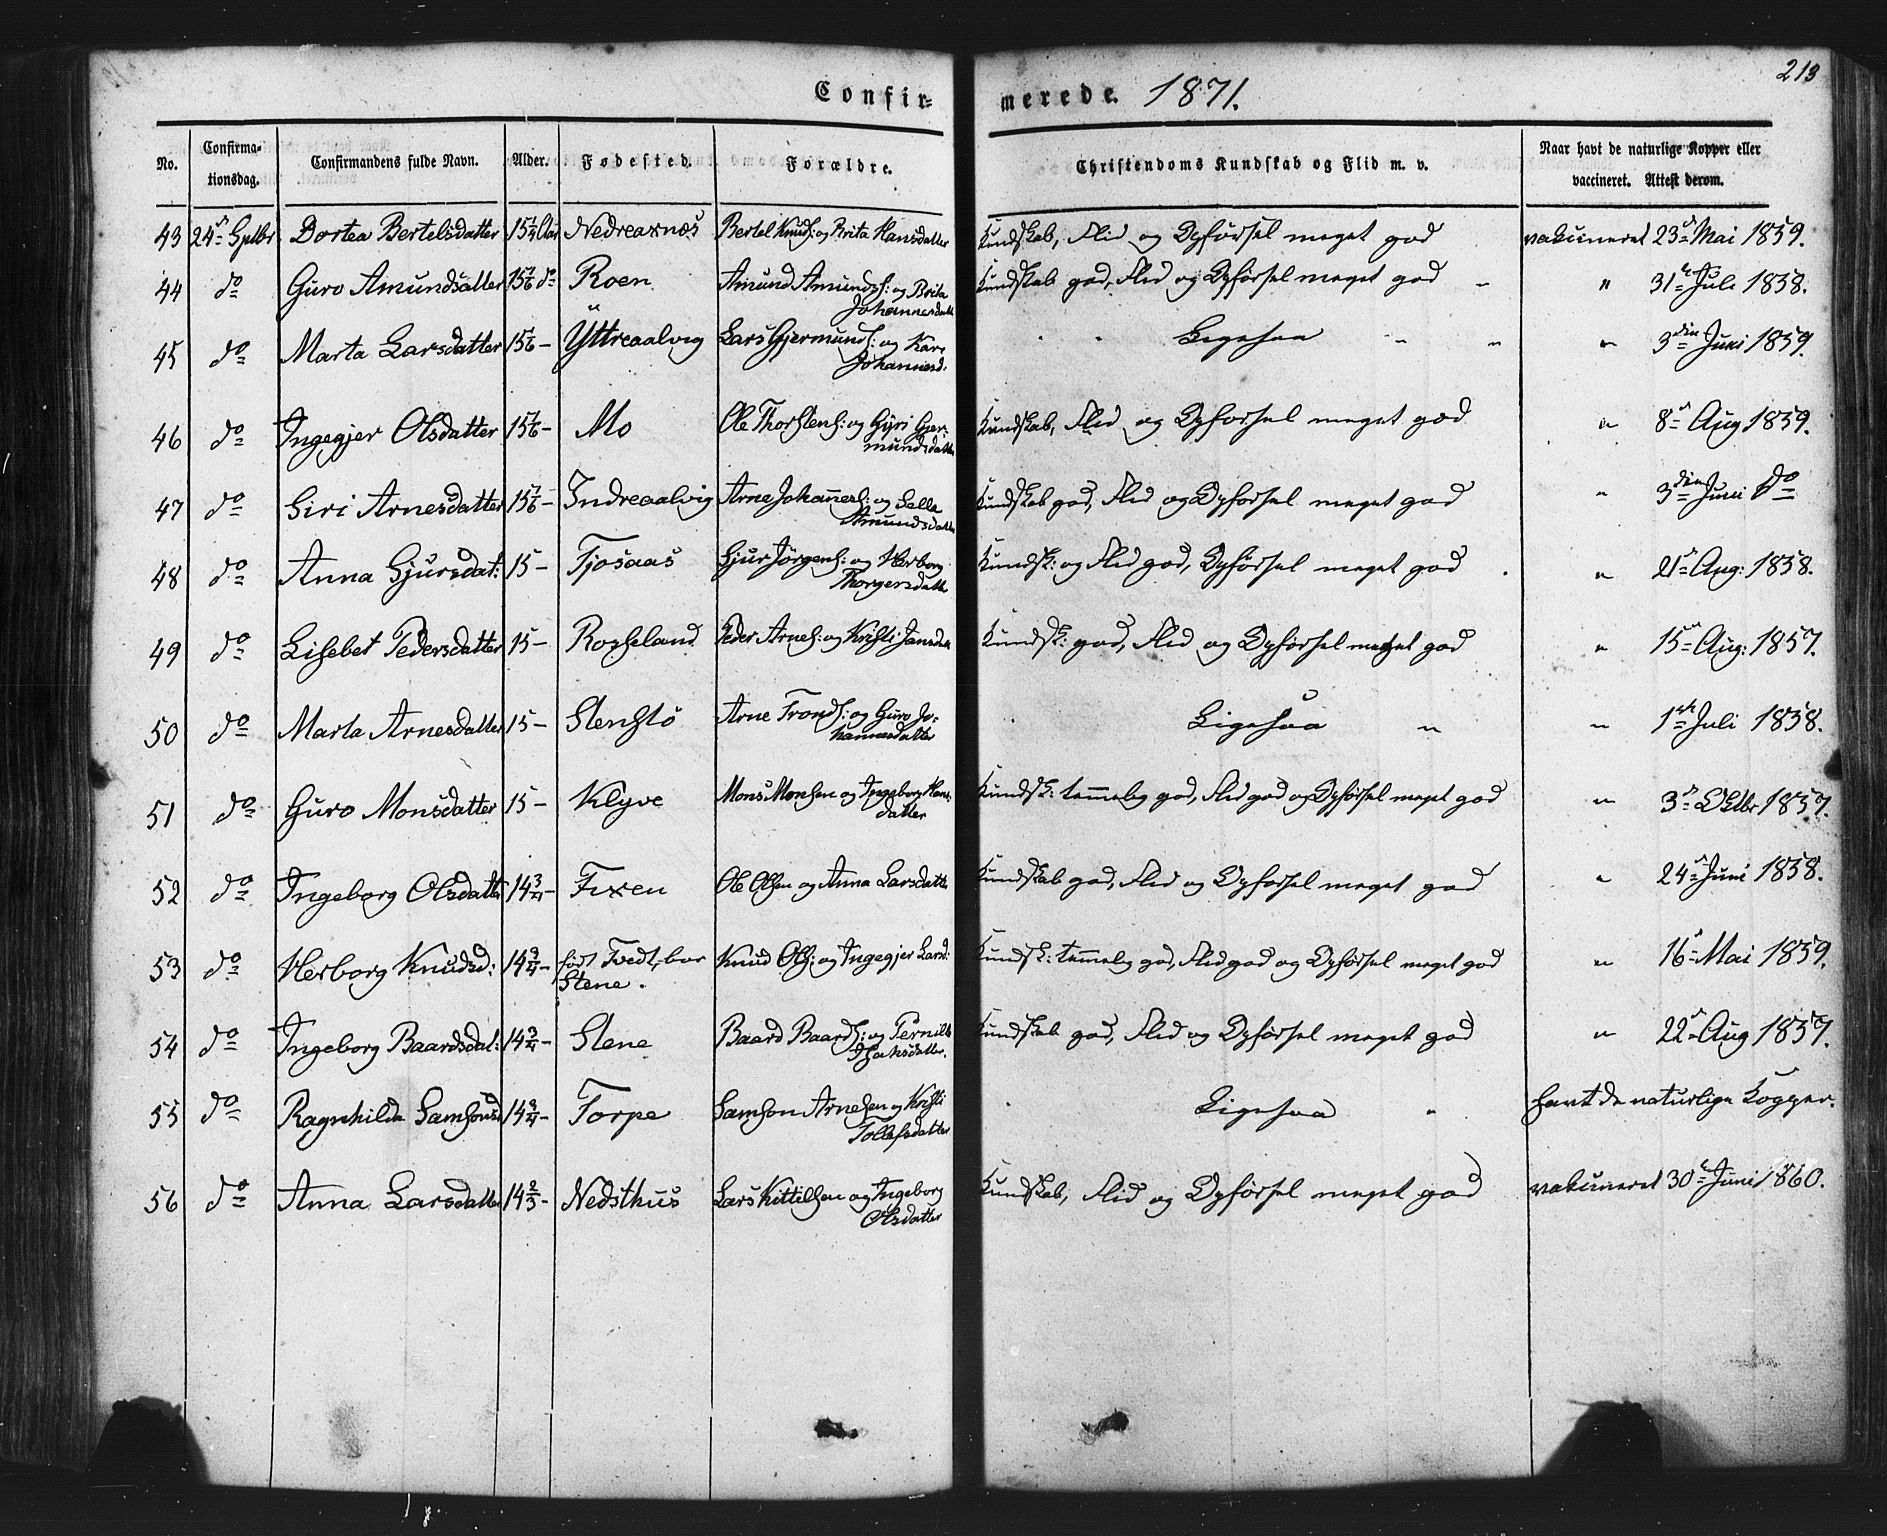 Confir=
merede. 1871.
213
No.
Confirma-
tionsdag.
Confirmandens fulde Navn.
Alder.
Fødested.
Forældre.
Christendoms Kundskab og Flid m. v.
Naar havt de naturlige Kopper eller
vaccineret. Attest derom.
43 24de Sptbr. Dortea Bertelsdatter 15 1/4 Aar Nedreaxnes Bertel Knuds: og Brita Hansdatter Kundskab, Flid og Opførsel meget god vakcineret 23de Mai 1859.
44 do Guro Amundsdatter 15 1/6 do Roen Amund Amunds: og Brita
Johannesdatt
Kundskab god, Flid og Opførsel meget god " " 31te Juli 1858.
45 do Marta Larsdatter 15 1/6 - Yttreaalvig Lars Gjermunds: og Kari
Johannesd.
" " Ligesaa " " " 3die Juni 1859.
46 do Ingegjer Olsdatter 15 1/6 - Mo Ole Thorstens: og Gyri Gjer-
mundsdatter
Kundskab, Flid og Opførsel meget god " 8de Aug 1859.
47 do Siri Arnesdatter 15 1/6 - Indreaalvig Arne Johannes: og Salla
Amundsdatter
Kundskab god, Flid og Opførsel meget god " 3die Juni do
48 do Anna Sjursdat: 15 - Tjosaas Sjur Jørgens: og Herborg
Thorgersdatter
Kundsk: og Flid god, Opførsel meget god " 21de Aug: 1858.
49 do Lisebet Pedersdatter 15 - Rogseland Peder Arnes: og Kristi Jansdatt Kundsk: god, Flid og Opførsel meget god " 15de Aug: 1857.
50 do Marta Arnesdatter 15 - Stenstø Arne Tronds: og Guro Jo-
hannesdatter
Ligesaa " " 1ste Juli 1858.
51 do Guro Monsdatter 15 - Klyve Mons Monsen og Ingeborg Hans
datter
Kundsk: temmelig god, Flid god og Opførsel meget god " 3de Oktbr 1857.
52 do Ingeborg Olsdatter 14 3/4 - Fixen Ole Olsen og Anna Larsdatter Kundskab god, Flid og Opførsel meget god " 24de Juni 1858.
53 do Herborg Knudsd: 14 3/4 - født Tvedt, bor
Stene.
Knud Ols: og Ingegjer Larsd: Kundsk: temmelig god, Flid god og Opførsel meget god " 16de Mai 1859.
54 do Ingeborg Baardsdat: 14 3/4 - Stene Baard Baards: og Pernille
Isaksdatter.
Kundskab god, Flid og Opførsel meget god " 22de Aug 1857.
55 do Ragnhilda Samsonsd 14 3/4 - Torpe Samson Arnesen og Kristi
Tollefsdatter
Ligesaa " havt de naturlige Kopper.
56 do Anna Larsdatter 14 2/3 - Nedsthus Lars Kittilsen og Ingeborg
Olsdatter
Kundskab, Flid og Opførsel meget god vakcineret 30te Juni 1860.